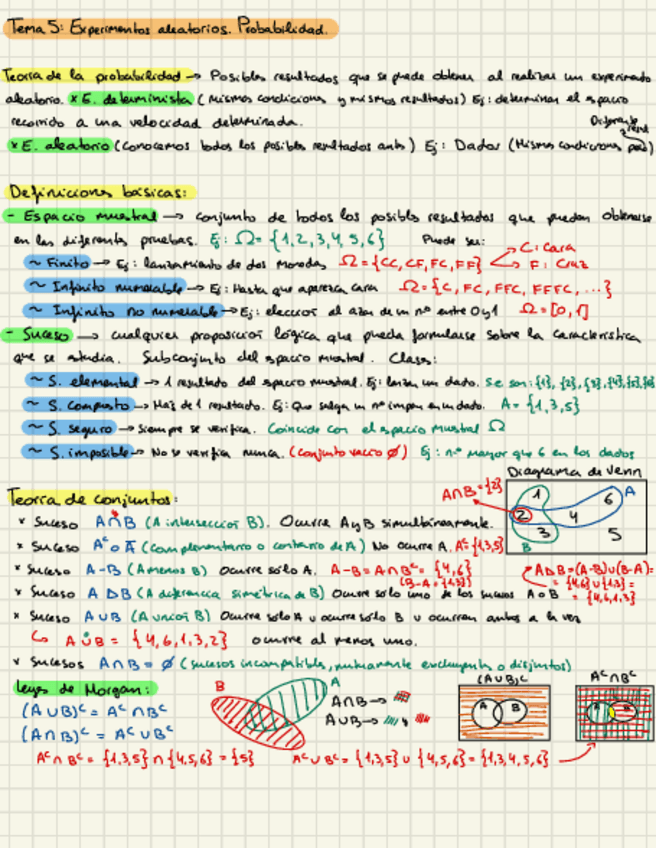 Tema 5: Experimentos aleatorios. Probabilidad.
Teoría de la probabilidad → Posibles resultados que se puede obtener al realizar un experimento
aleatorio. * E. determinista (mismas condiciones y mismos resultados) Ej: determinar el espacio
recorrido a una velocidad determinada.
* E. aleatorio (conocemos todos los posibles resultados antes) Ej: Dados (Mismas condiciones
Definiciones básicas:
- Espacio muestral → conjunto de todos los posibles resultados que puedan obtenerse
en las diferentes pruebas. Ej: Ω = {1,2,3,4,5,6} Puede ser:
~ Finito → Ej: lanzamiento de dos monedas Ω = {CC, CF, FC, FF} C: Cara F: Cruz
~ Infinito numerable → Ej: Hasta que aparezca cara Ω = {C, FC, FFC, FFFC, ...}
~ Infinito no numerable → Ej: elección al azar de un nº entre 0 y 1 Ω = [0,1]
- Suceso → cualquier proposición lógica que pueda formularse sobre la característica
que se estudia. Subconjunto del espacio muestral. Clases:
~ S. elemental → 1 resultado del espacio muestral. Ej: lanzar un dado. S.e son: {1}, {2}, {3}, {4}, {5}, {6}
~ S. compuesto → Más de 1 resultado. Ej: Que salga un nº impar en un dado. A = {1,3,5}
~ S. seguro → siempre se verifica. Coincide con el espacio muestral Ω
~ S. imposible → No se verifica nunca. (conjunto vacío ∅) Ej: nº mayor que 6 en los dados
Diagrama de Venn
Teoría de conjuntos:
A∩B = {2}
1 6 A
2 4
3 5
B
* Suceso A∩B (A intersección B). Ocurre A y B simultáneamente.
* Suceso Aᶜ o A̅ (complementario o contrario de A) No ocurre A. Aᶜ = {1,3,5}
* Suceso A-B (A menos B) Ocurre sólo A. A-B = A∩Bᶜ = {4,6}
(B-A = {1,3})
A∆B = (A-B)∪(B-A) =
= {4,6}∪{1,3} =
= {4,6,1,3}
* Suceso A∆B (A diferencia simétrica de B) Ocurre sólo uno de los sucesos A o B
* Suceso A∪B (A unión B) Ocurre sólo A u ocurre sólo B u ocurren ambos a la vez
↳ A∪B = {4,6,1,3,2} ocurre al menos uno.
* Sucesos A∩B = ∅ (sucesos incompatibles, mutuamente excluyentes o disjuntos)
Leyes de Morgan:
(A∪B)ᶜ = Aᶜ∩Bᶜ
(A∩B)ᶜ = Aᶜ∪Bᶜ
B A
A∩B →
A∪B → y
(A∪B)ᶜ
A B
Aᶜ∩Bᶜ
A B
Aᶜ∩Bᶜ = {1,3,5}∩{4,5,6} = {5} Aᶜ∪Bᶜ = {1,3,5}∪{4,5,6} = {1,3,4,5,6}